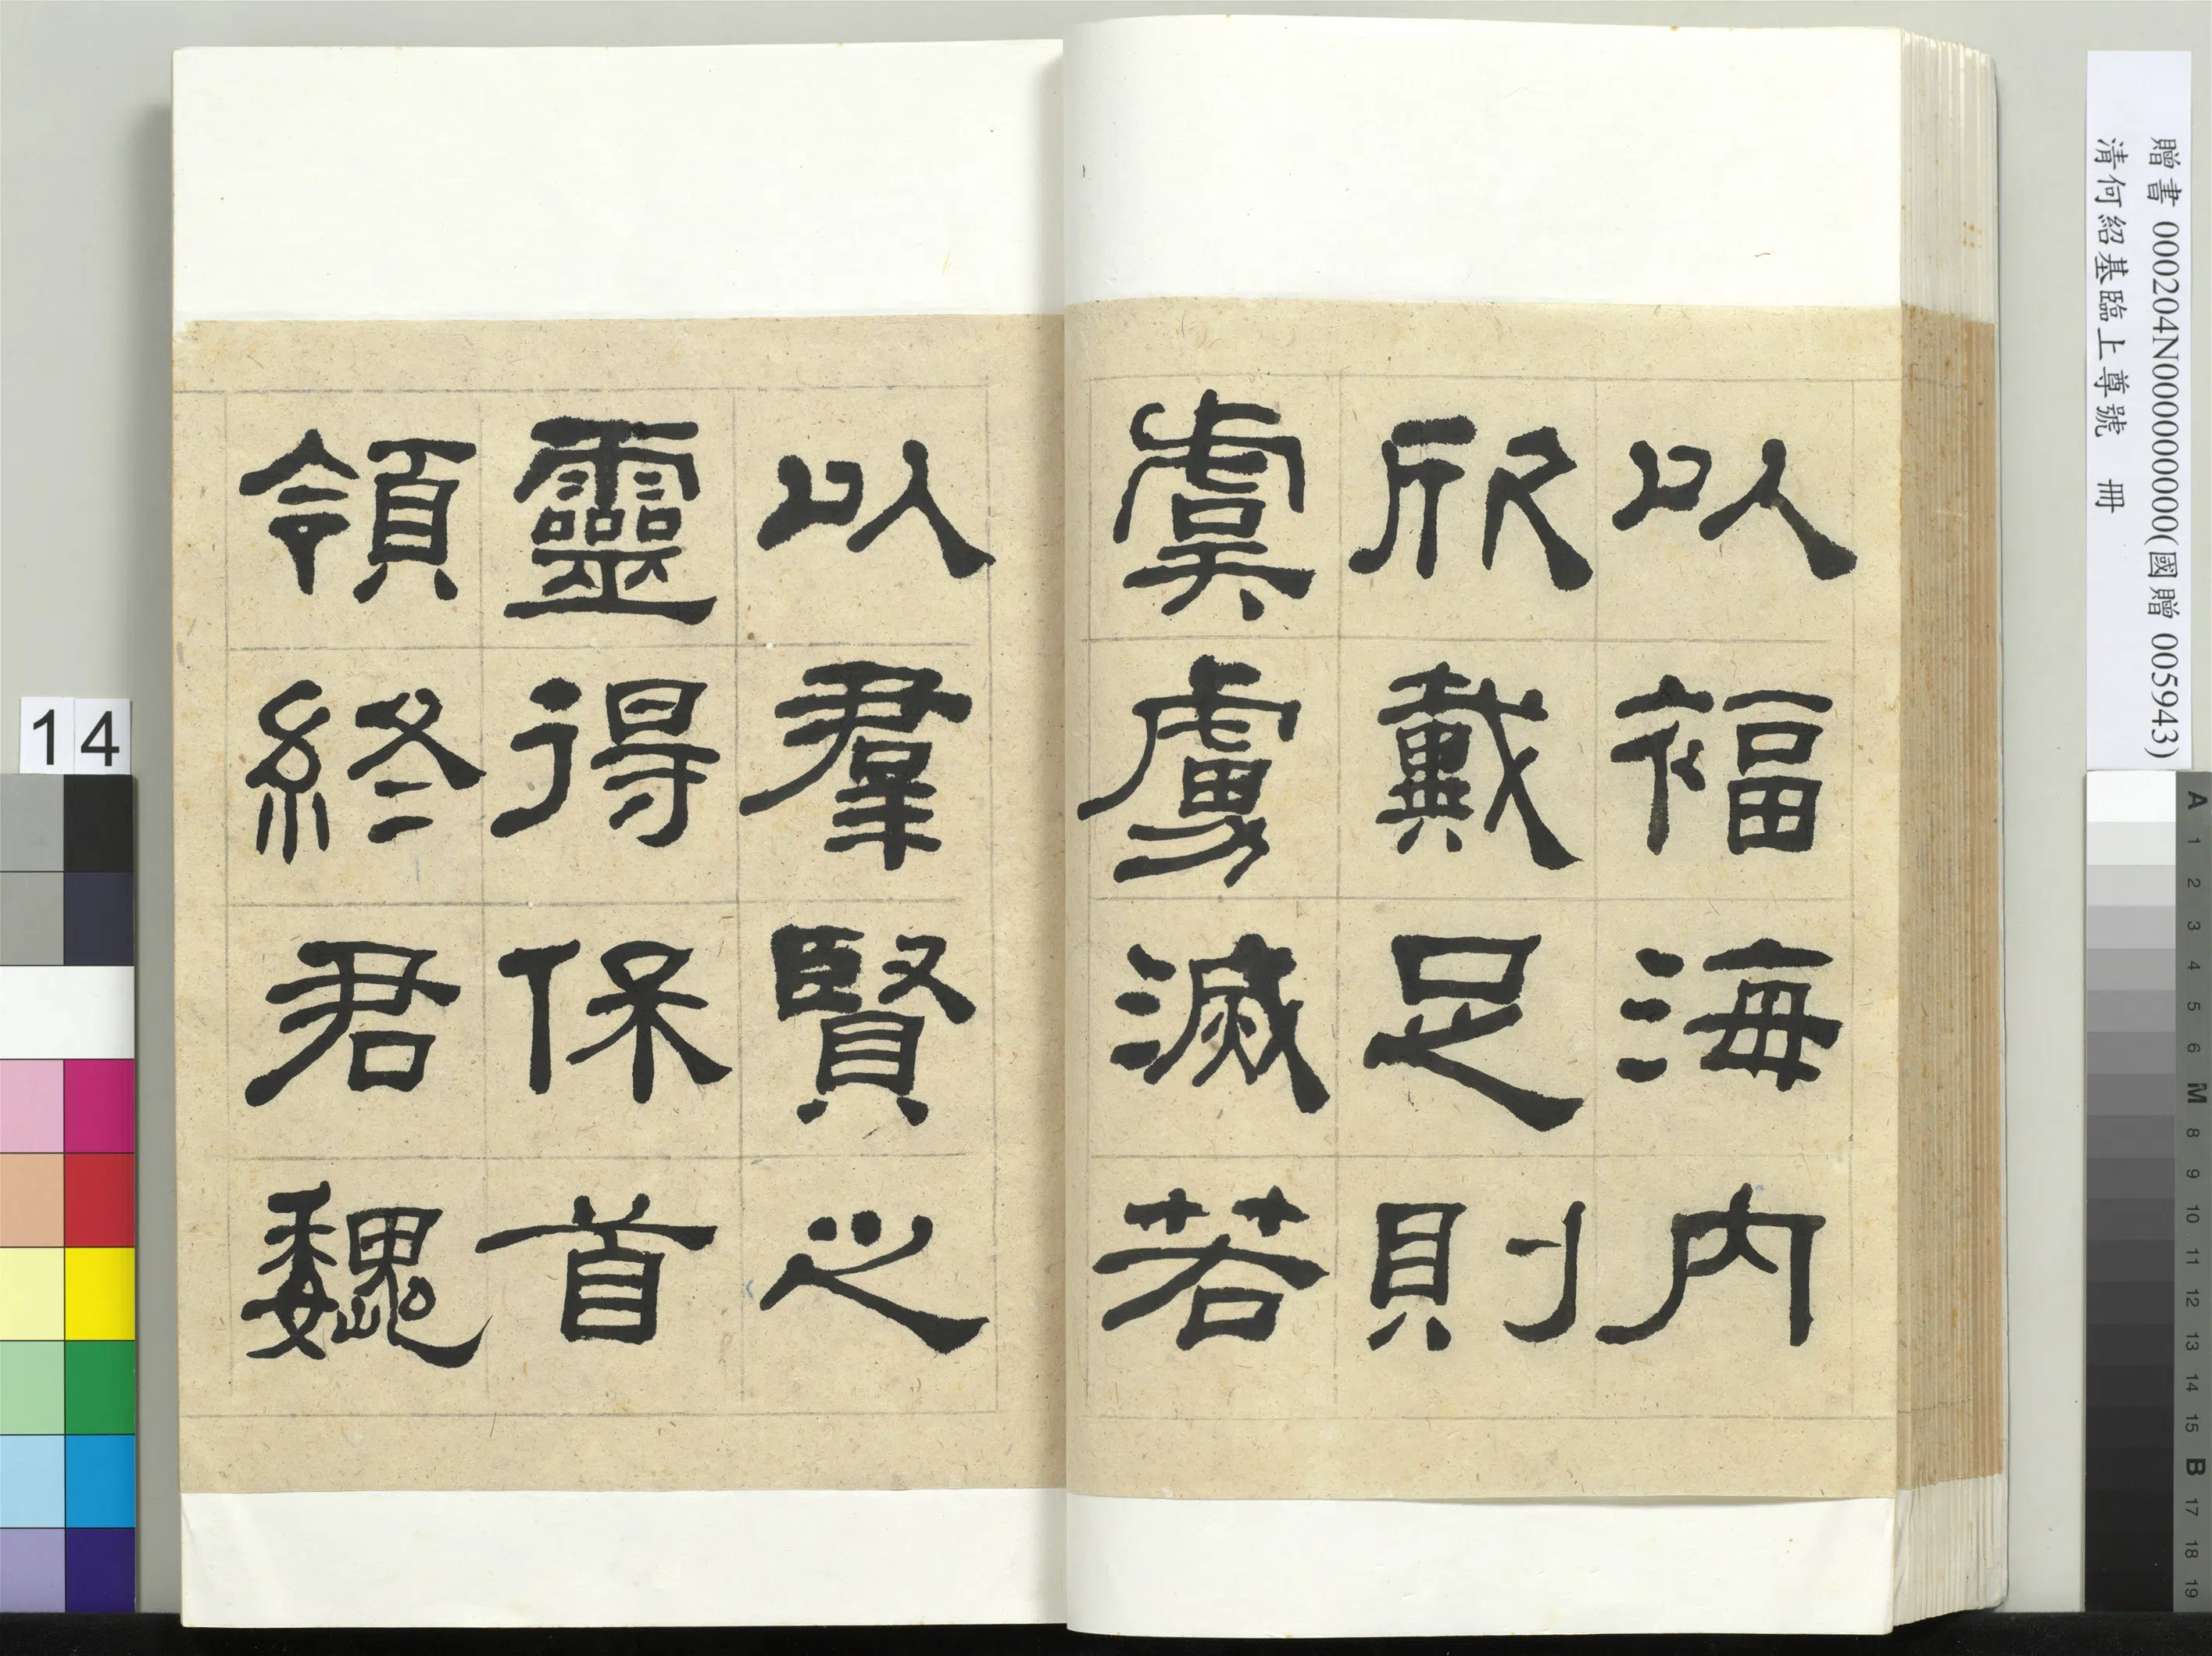 以福海内
欣戴足則
虞虜滅若
以羣賢之
靈得保首
領終君魏
贈書 000204N000000000(國贈 005943)
清何紹基臨上尊號 冊
14
A 1 2 3 4 5 6 M 8 9 10 11 12 13 14 15 B 17 18 19